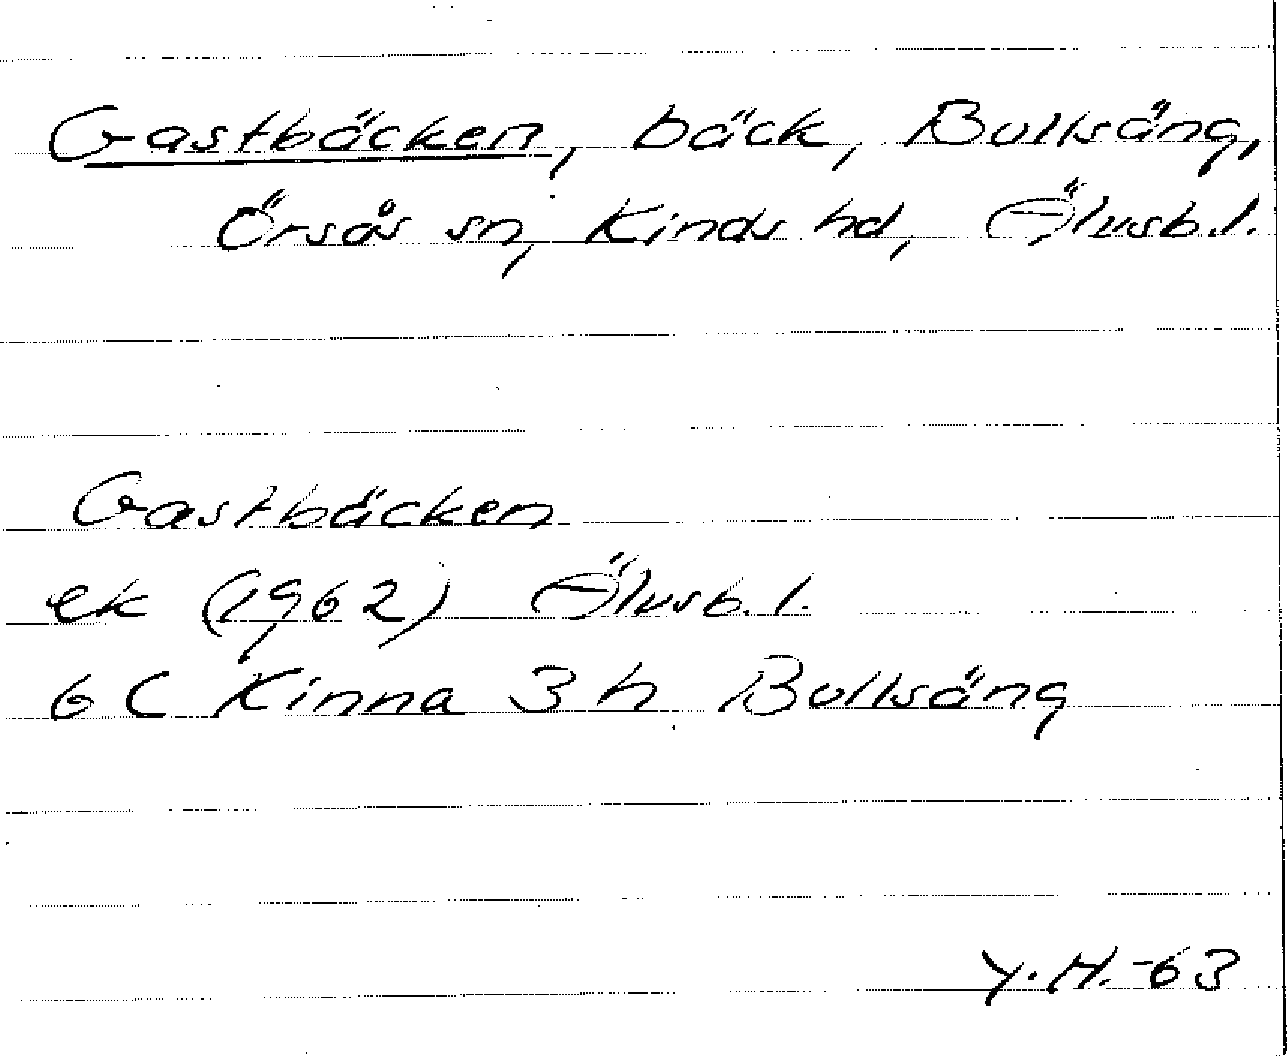 Gastbäcken, bäck, Bullsäng,
Örsås sn, Kinds hd, Älvsb. l.
Gastbäcken
ek (1962) Älvsb. l.
6 C Kinna 3 h Bullsäng
Y. H. -63